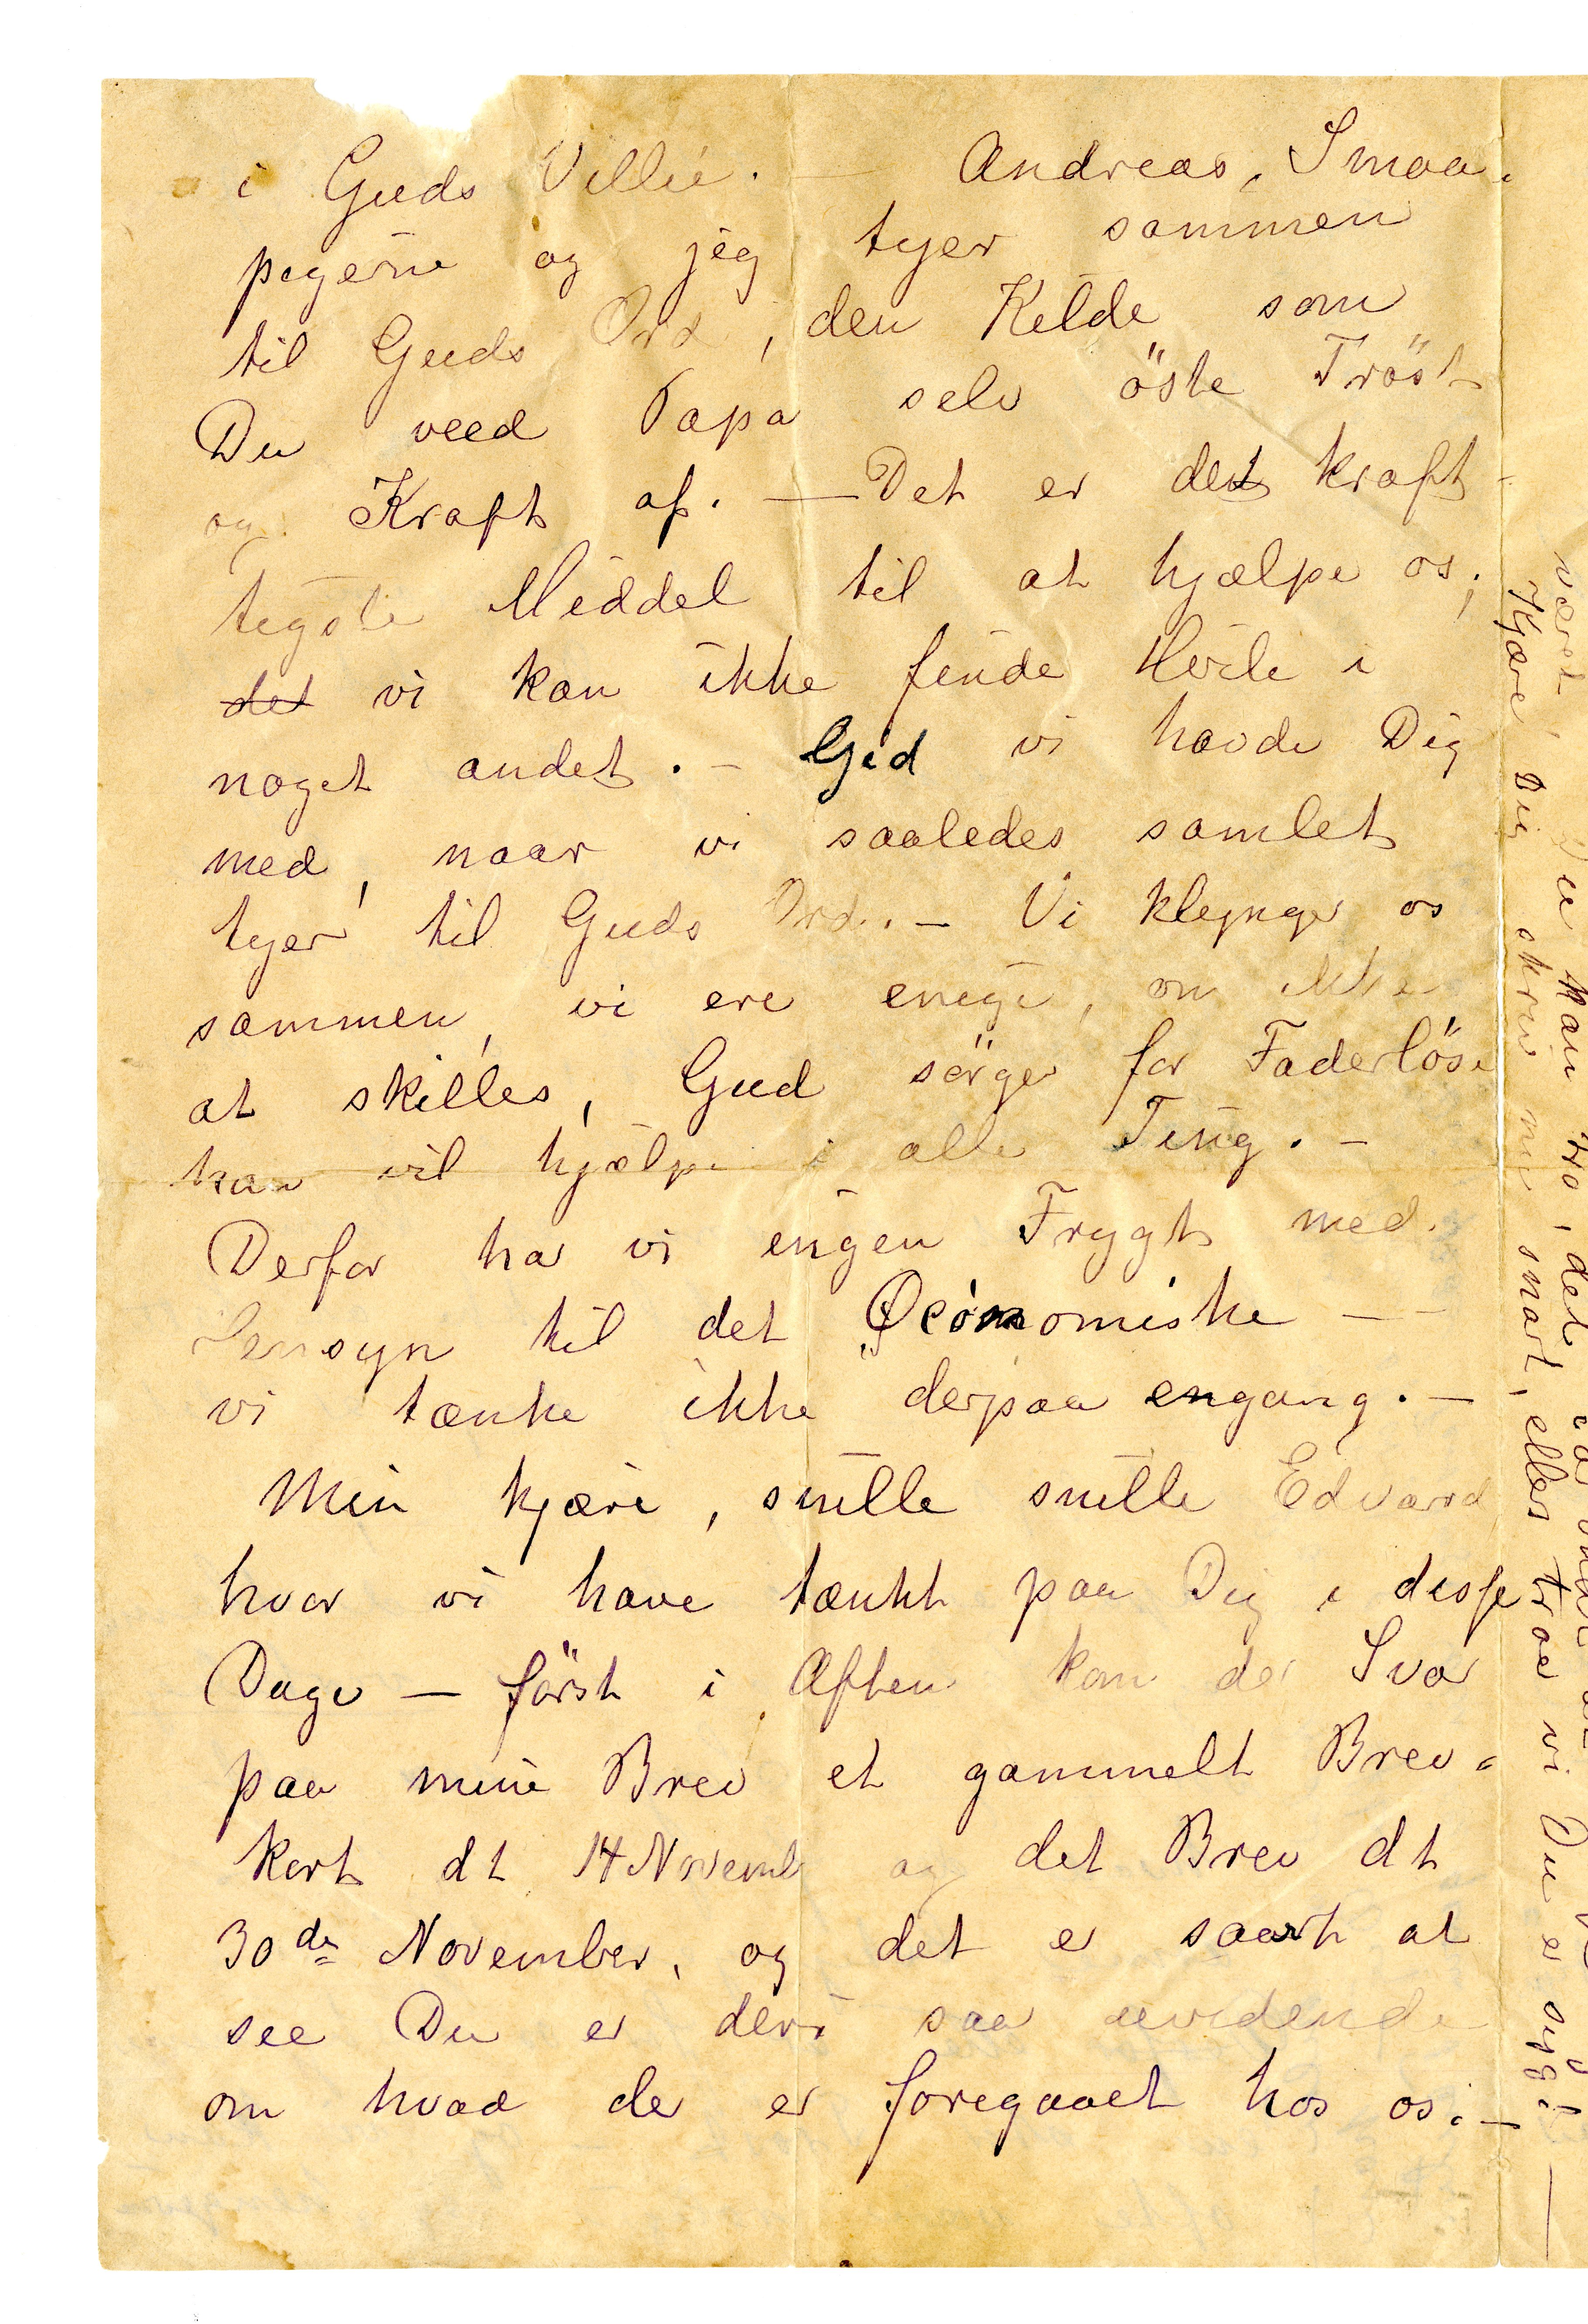 i Guds Villie. — Andreas, Smaa-
pigerne og jeg tyer sammen
til Guds Ord, den Kilde som
Du veed Papa selv öste Tröst
og Kraft af. — Det er det kraft-
tigste Middel til at hjælpe os;
det vi kan ikke finde Hvile i
noget andet. — Gid vi havde Dig
med, naar vi saaledes samlet
tyer til Guds Ord. — Vi klynger os
sammen, vi ere enige, om ikke
at skilles, Gud sörger for Faderlöse
han vil hjælpe i alle Ting. —
Derfor har vi ingen Frygt med
Hensyn til det Øconomiske —
vi tænke ikke derpaa engang. —
Min kjære, snille snille Edvard
hvor vi have tænkt paa Dig i disse
Dage — först i Aften kom der Svar
paa mine Brev et gammelt Brev-
kort dt 14 Novemb og det Brev dt
30de November, og det er saart at
see Du er deri saa uvidende
om hvad der er foregaaet hos os. —
været, Du kan tro, det var
Kjære Dig skriv nu snart, ellers troe vi Du er syg! —